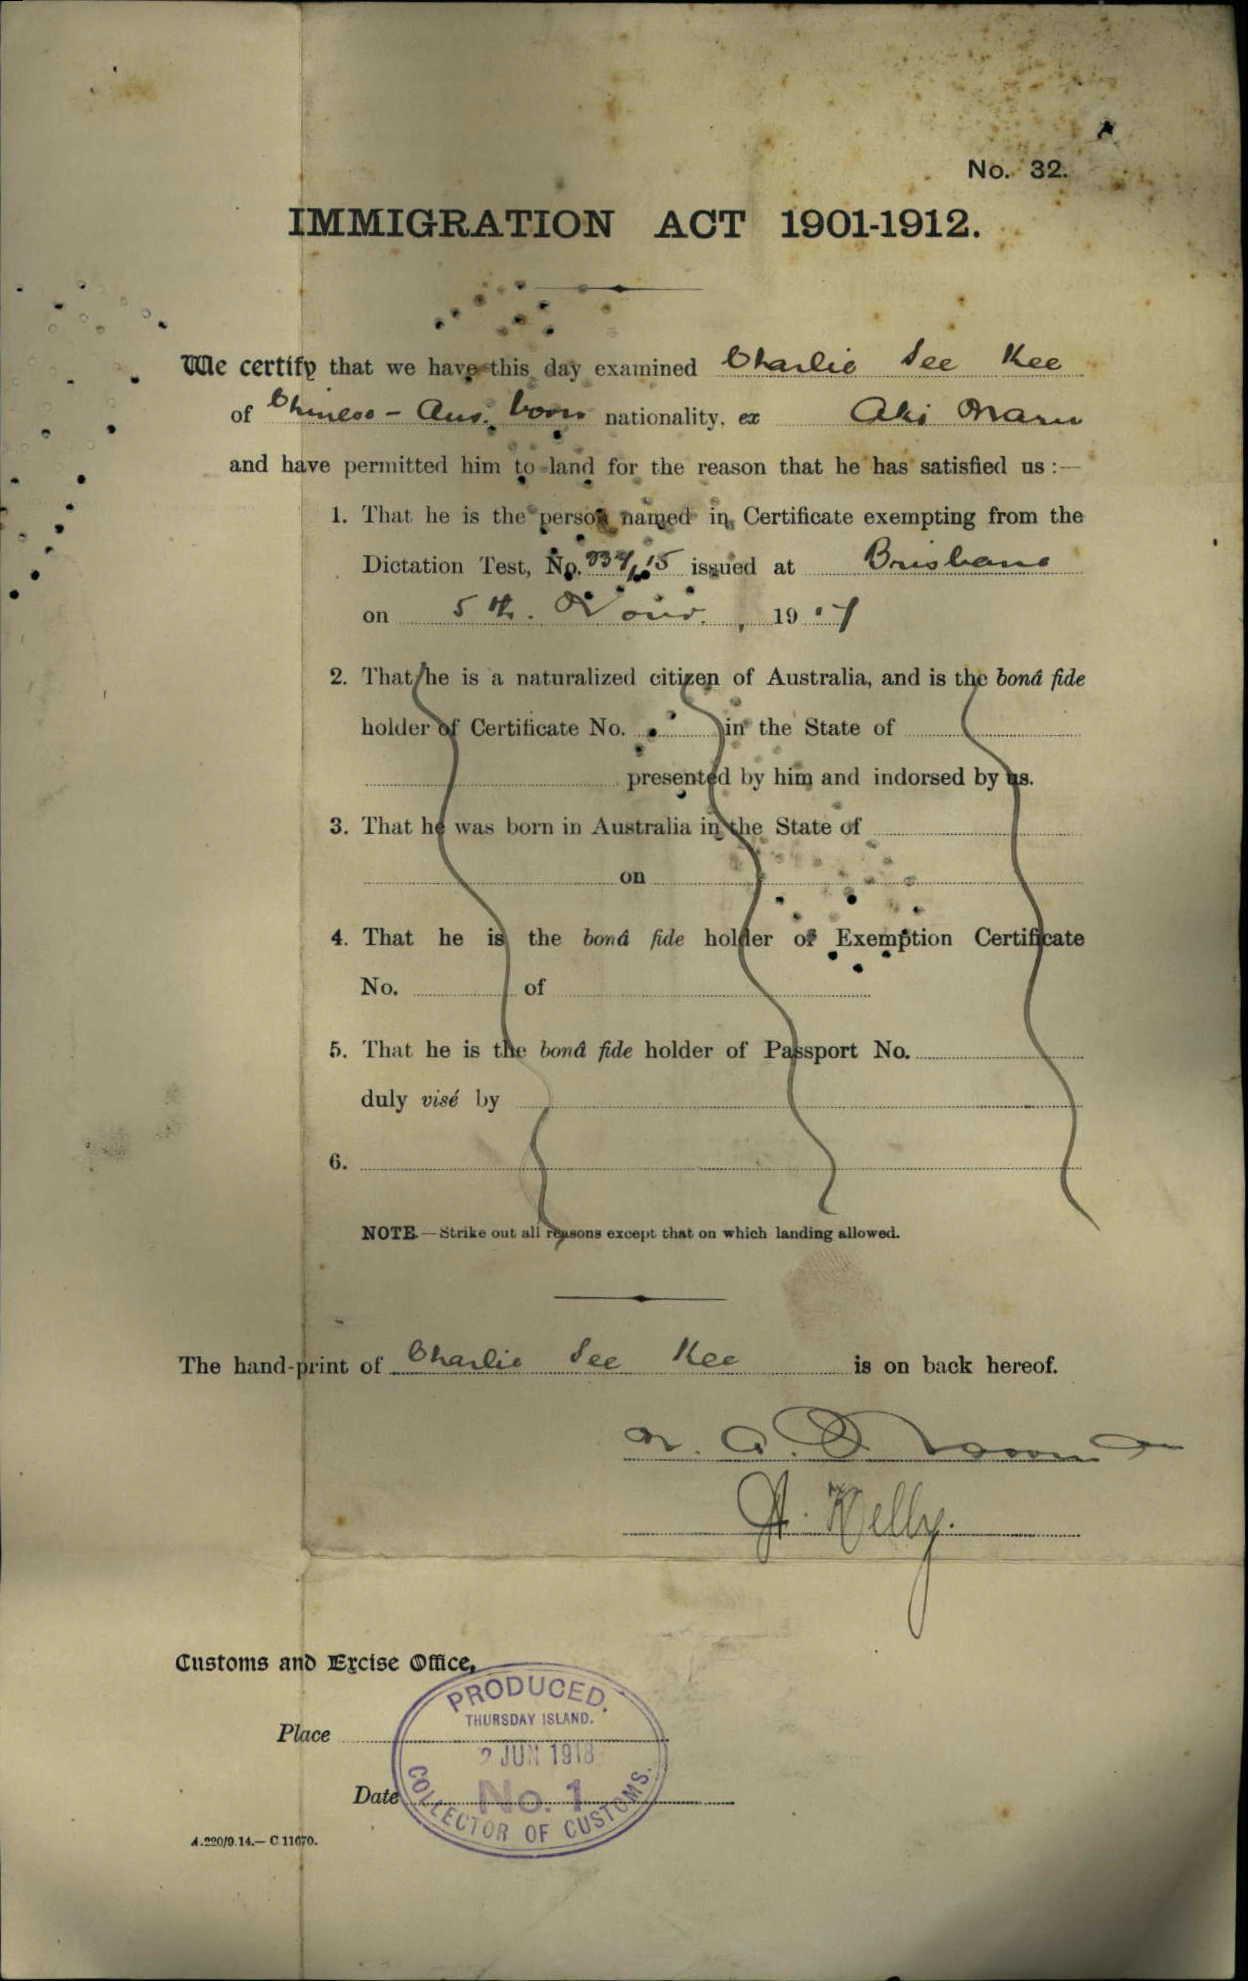 No. 32.
IMMIGRATION ACT 1901-1912.
We certify that we have this day examined Charlie See Kee
of Chinese - Aus. born nationality, ex Aki Maru
and have permitted him to land for the reason that he has satisfied us :—
1. That he is the person named in Certificate exempting from the
Dictation Test, No. issued at Brisbane
on 5th. Novr. , 19 17
2. That he is a naturalized citizen of Australia, and is the bonâ fide
holder of Certificate No. in the State of
presented by him and indorsed by us.
3. That he was born in Australia in the State of
on
4. That he is the bonâ fide holder of Exemption Certificate
No. of
5. That he is the bonâ fide holder of Passport No.
duly visé by
6.
NOTE.—Strike out all reasons except that on which landing allowed.
The hand-print of Charlie See Kee is on back hereof.
Kelly.
Customs and Excise Office,
PRODUCED.
THURSDAY ISLAND.
Place
2 JUN 1918
Date
No. 1
COLLECTOR OF CUSTOMS.
A.220/9.14.—C 11670.